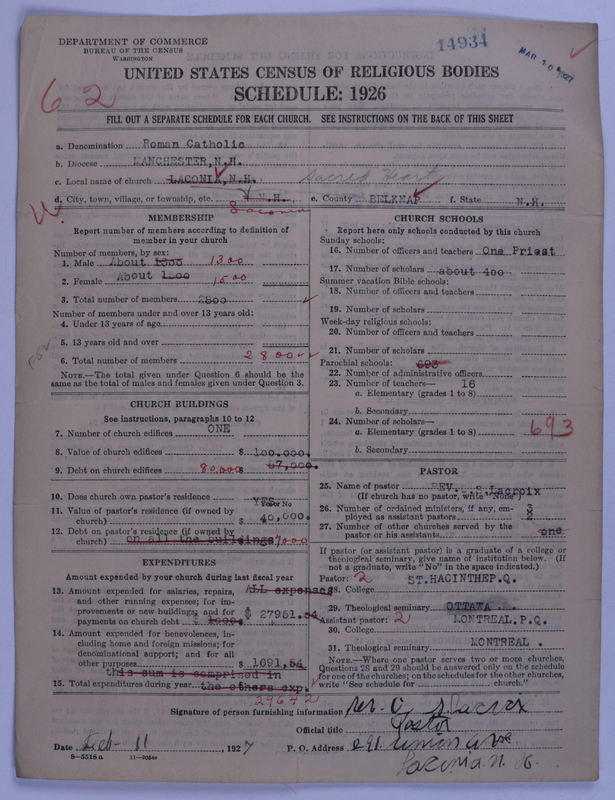 DEPARTMENT OF COMMERCE
BUREAU OF THE CENSUS
WASHINGTON
14934
MAR 10 1927
UNITED STATES CENSUS OF RELIGIOUS BODIES
SCHEDULE: 1926
62
FILL OUT A SEPARATE SCHEDULE FOR EACH CHURCH. SEE INSTRUCTIONS ON THE BACK OF THIS SHEET
a. Denomination Roman Catholic
b. Diocese MANCHESTER, N.H.
c. Local name of church LACONIA, N.H. Sacred Heart
d. City, town, village, or township, etc. N.H. e. County BELKNAP f. State N.H.
Laconia
MEMBERSHIP
Report number of members according to definition of
member in your church
Number of members, by sex:
1. Male About 1300 1300
2. Female About 1500 1500
3. Total number of members 2800
Number of members under and over 13 years old:
4. Under 13 years of age
5. 13 years old and over
6. Total number of members 2800
NOTE.—The total given under Question 6 should be
same as the total of males and females given under Question 3.
CHURCH BUILDINGS
See instructions, paragraphs 10 to 12
7. Number of church edifices ONE
8. Value of church edifices $ 100.000.
9. Debt on church edifices 80,000 $ 67,000.
10. Does church own pastor's residence YES
Yes or No
11. Value of pastor's residence (if owned by
church) $ 40,000.
12. Debt on pastor's residence (if owned by
church) on all the buildings 7000
EXPENDITURES
Amount expended by your church during last fiscal year
13. Amount expended for salaries, repairs, ALL expenses
and other running expenses; for im-
provements or new buildings; and for
payments on church debt $ 27951.54
14. Amount expended for benevolences, in-
cluding home and foreign missions; for
denominational support; and for all
other purposes $ 1691,54
this sum is comprized in
15. Total expenditures during year the others exp.
29642
CHURCH SCHOOLS
Report here only schools conducted by this church
Sunday schools:
16. Number of officers and teachers One Priest
17. Number of scholars about 400
Summer vacation Bible schools:
18. Number of officers and teachers
19. Number of scholars
Week-day religious schools:
20. Number of officers and teachers
21. Number of scholars
Parochial schools: 693
22. Number of administrative officers
23. Number of teachers— 16
a. Elementary (grades 1 to 8)
b. Secondary
24. Number of scholars—
a. Elementary (grades 1 to 8) 693
b. Secondary
PASTOR
25. Name of pastor REV. Lacroix
(If church has no pastor, write "None")
26. Number of ordained ministers, if any, em-
ployed as assistant pastors 2
27. Number of other churches served by the
pastor or his assistants one
If pastor (or assistant pastor) is a graduate of a college or
theological seminary, give name of institution below. (If
not a graduate, write "No" in the space indicated.)
Pastor: 2
28. College ST.HACINTHE P.Q.
29. Theological seminary OTTAWA
Assistant pastor: 2 MONTREAL, P.Q.
30. College
31. Theological seminary MONTREAL.
NOTE.—Where one pastor serves two or more churches,
Questions 28 and 29 should be answered only on the schedule
for one of the churches; on the schedules for the other churches,
write "See schedule for church."
Signature of person furnishing information Rev. Lacroix
Official title Pastor
Date Feb 11, 1927 P. O. Address 291 Union Ave
Laconia N. H.
8—5518a